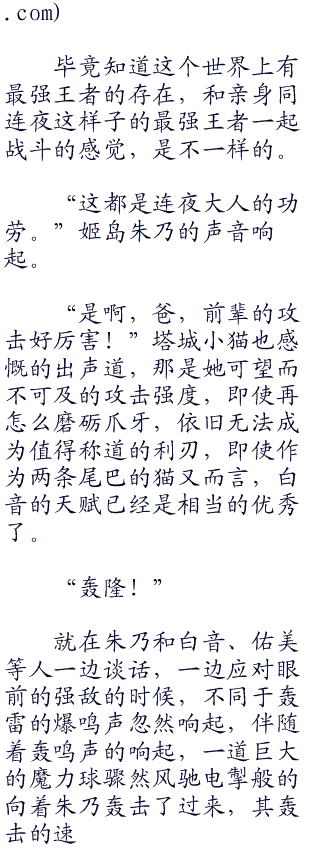 .com)
毕竟知道这个世界上有
最强王者的存在，和亲身同
连夜这样子的最强王者一起
战斗的感觉，是不一样的。
“这都是连夜大人的功
劳。”姬岛朱乃的声音响
起。
“是啊，爸，前辈的攻
击好厉害！”塔城小猫也感
慨的出声道，那是她可望而
不可及的攻击强度，即使再
怎么磨砺爪牙，依旧无法成
为值得称道的利刃，即使作
为两条尾巴的猫又而言，白
音的天赋已经是相当的优秀
了。
“轰隆！”
就在朱乃和白音、佑美
等人一边谈话，一边应对眼
前的强敌的时候，不同于轰
雷的爆鸣声忽然响起，伴随
着轰鸣声的响起，一道巨大
的魔力球骤然风驰电掣般的
向着朱乃轰击了过来，其轰
击的速